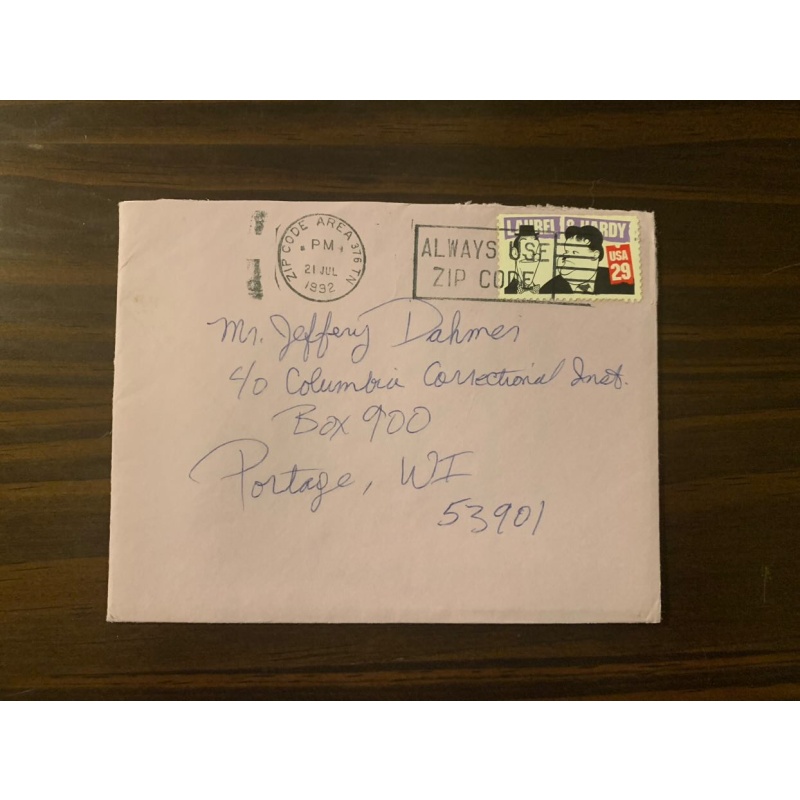 LAUREL & HARDY
USA
29
ZIP CODE AREA 376 TN
PM
21 JUL
1992
ALWAYS USE
ZIP CODE
Mr. Jeffery Dahmer
c/o Columbia Correctional Inst.
Box 900
Portage, WI
53901